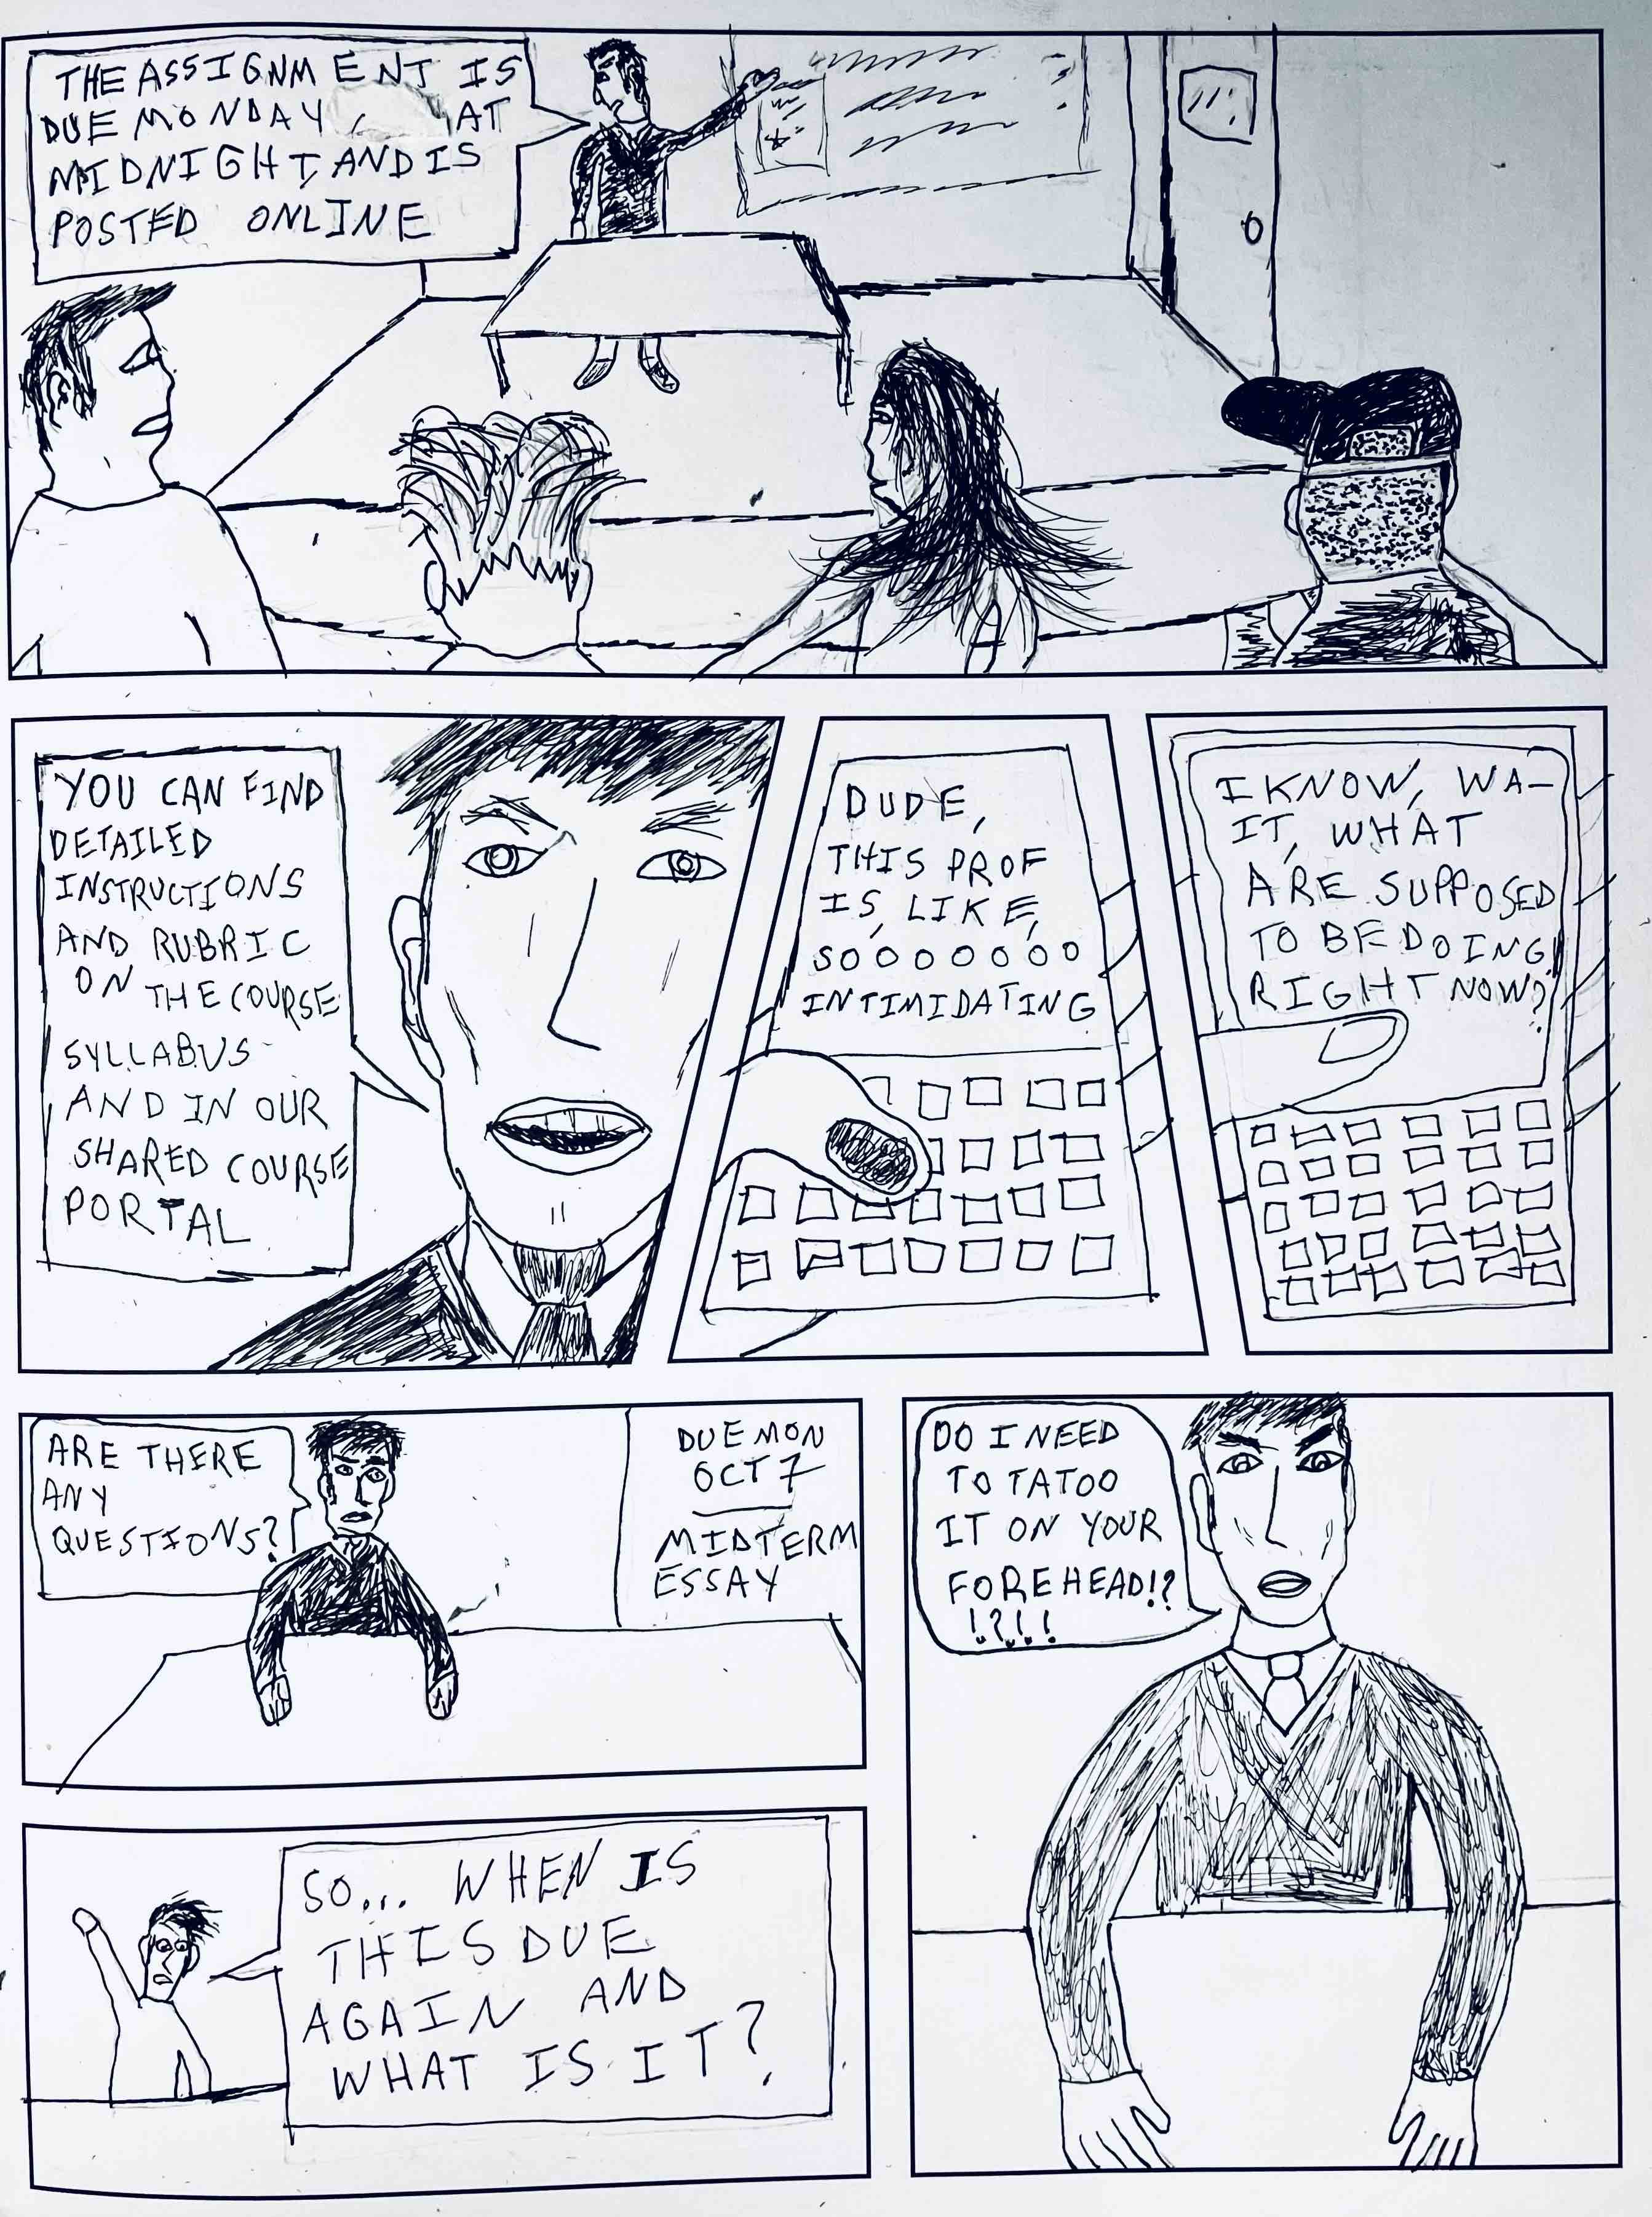 THE ASSIGNMENT IS
DUE MONDAY, AT
MIDNIGHT, AND IS
POSTED ONLINE
YOU CAN FIND
DETAILED
INSTRUCTIONS
AND RUBRIC
ON THE COURSE
SYLLABUS
AND IN OUR
SHARED COURSE
PORTAL
DUDE,
THIS PROF
IS, LIKE,
SOOOOOOO
INTIMIDATING
I KNOW, WA-
IT, WHAT
ARE SUPPOSED
TO BE DOING
RIGHT NOW?
ARE THERE
ANY
QUESTIONS?
DUE MON
OCT 7
MIDTERM
ESSAY
SO... WHEN IS
THIS DUE
AGAIN AND
WHAT IS IT?
DO I NEED
TO TATOO
IT ON YOUR
FOREHEAD!?
!?!!